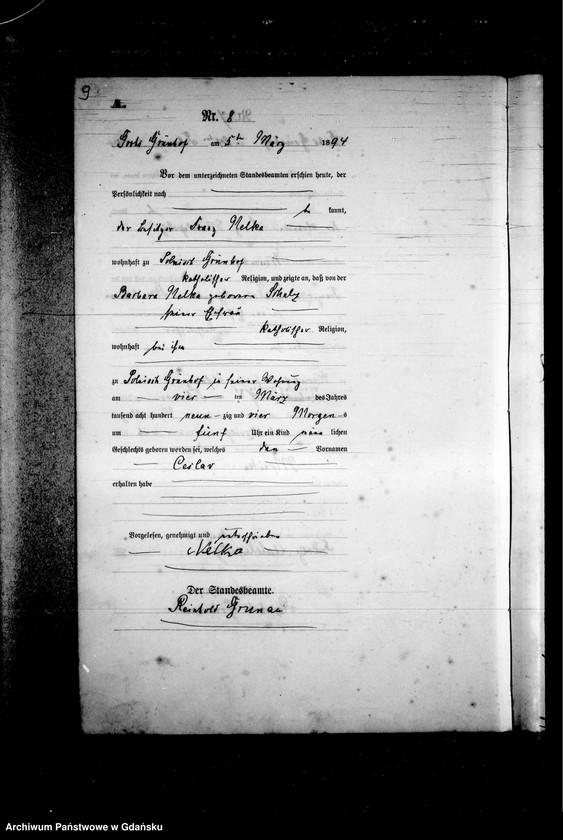 9
A.
Nr. 8
Forth Grünhof am 5ten März 1894
Vor dem unterzeichneten Standesbeamten erschien heute, der
Persönlichkeit nach
be kannt,
der Besitzer Franz Nelka
wohnhaft zu Polnisch Grünhof
katholischer Religion, und zeigte an, daß von der
Barbara Nelka geborene
seiner Ehefrau
katholischer Religion,
wohnhaft bei ihm
zu Polnisch Grünhof in seiner Wohnung
am vier ten März des Jahres
tausend acht hundert neun zig und vier Morgen s
um fünf Uhr ein Kind männ lichen
Geschlechts geboren worden sei, welches den Vornamen
Ceslav
erhalten habe
Vorgelesen, genehmigt und unterschrieben
Nelka
Der Standesbeamte.
Reinhold Grunau
Archiwum Państwowe w Gdańsku